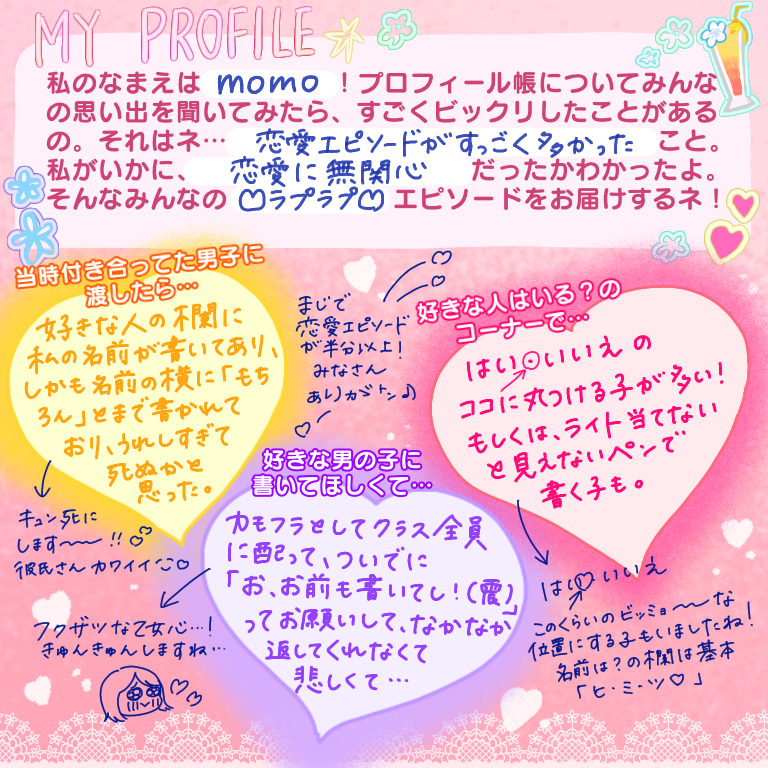 MY PROFILE
私のなまえは momo ！プロフィール帳についてみんな
の思い出を聞いてみたら、すごくビックリしたことがある
の。それはネ… 恋愛エピソードがすっごく多かった こと。
私がいかに、 恋愛に無関心 だったかわかったよ。
そんなみんなの ♡ラブラブ♡ エピソードをお届けするネ！
当時付き合ってた男子に
渡したら…
好きな人の欄に
私の名前が書いてあり、
しかも名前の横に「もち
ろん」とまで書かれて
おり、うれしすぎて
死ぬかと
思った。
キュン死に
します〜〜!!
彼氏さんカワイイ♡
まじで
恋愛エピソード
が半分以上！
みなさん
ありがトン♪
好きな人はいる？の
コーナーで…
はい⊙いいえの
ココに丸つける子が多い！
もしくは、ライト当てない
と見えないペンで
書く子も。
はい○いいえ
このくらいのビッミョ〜〜な
位置にする子もいましたね！
名前は？の欄は基本
「ヒ・ミ・ツ♡」
好きな男の子に
書いてほしくて…
カモフラとしてクラス全員
に配って、ついでに
「お、お前も書いてし！（震）」
ってお願いして、なかなか
返してくれなくて
悲しくて…
フクザツな乙女心…！
きゅんきゅんしますね…